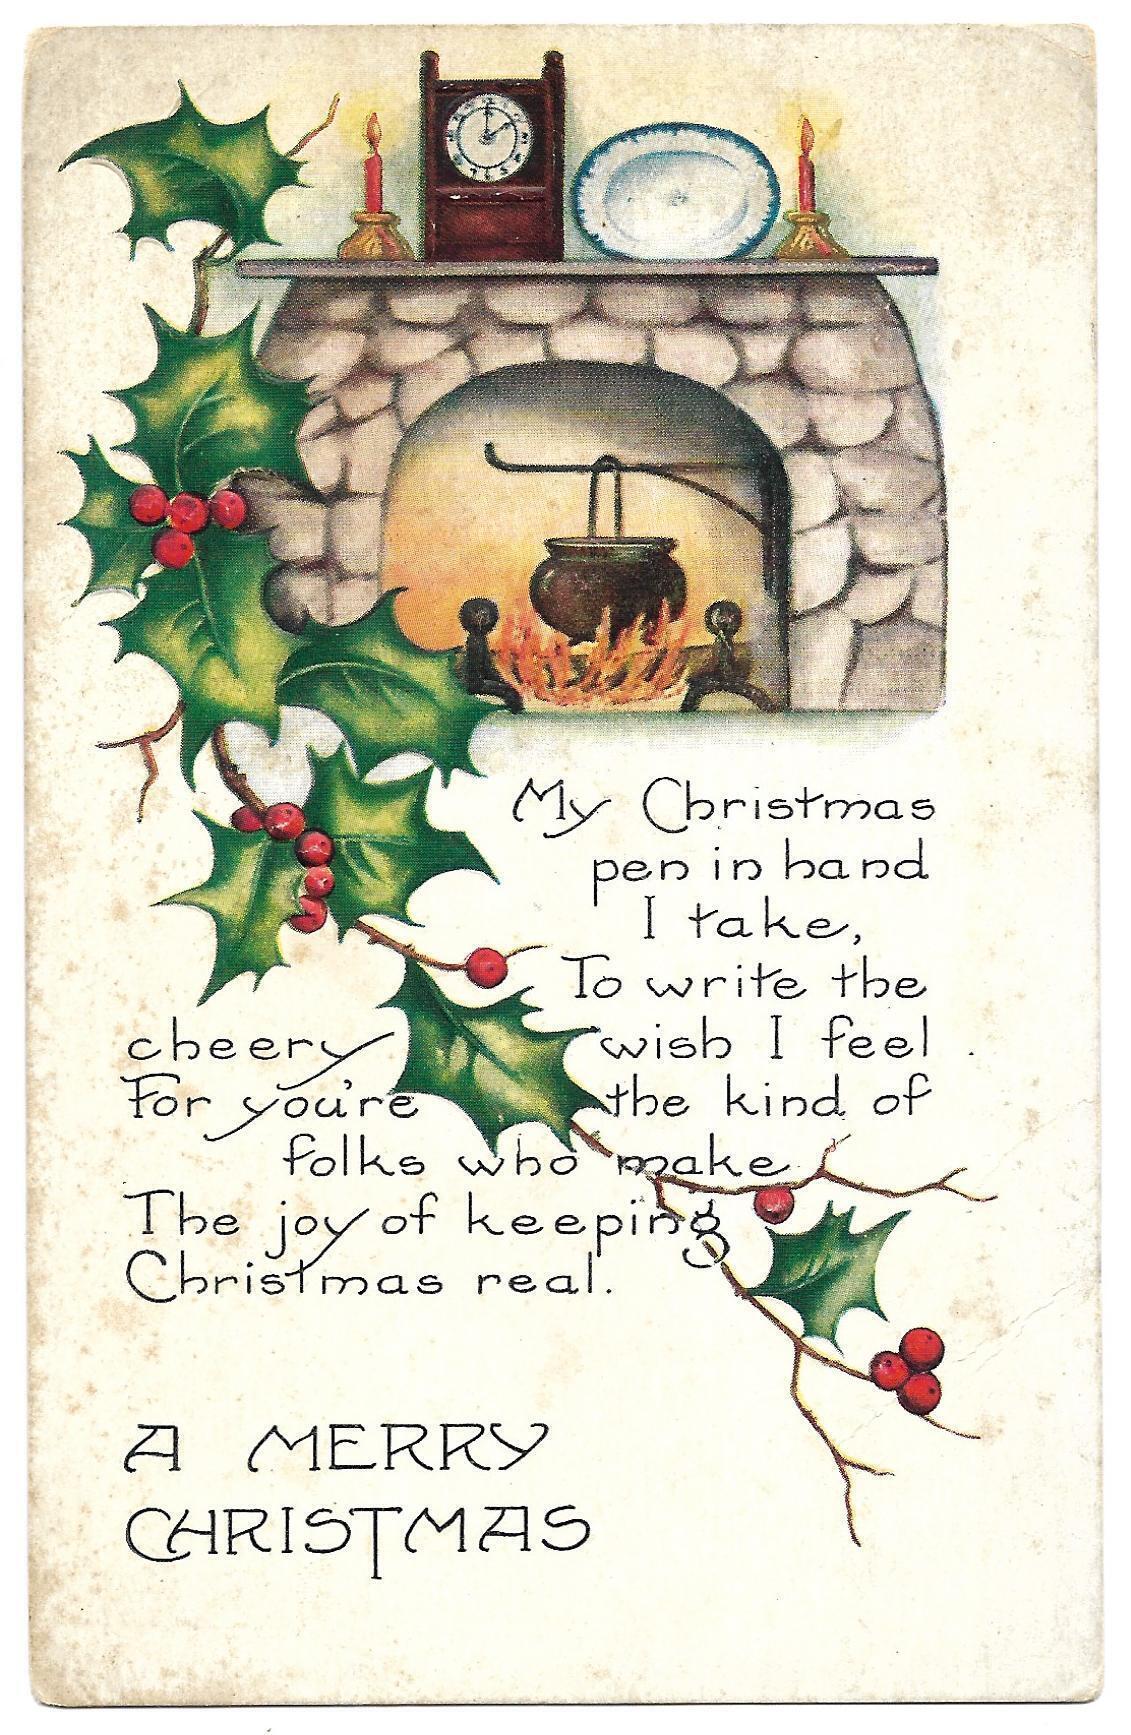 My Christmas
pen in hand
I take,
To write the
cheery wish I feel
For you're the kind of
folks who make
The joy of keeping
Christmas real.
A MERRY
CHRISTMAS